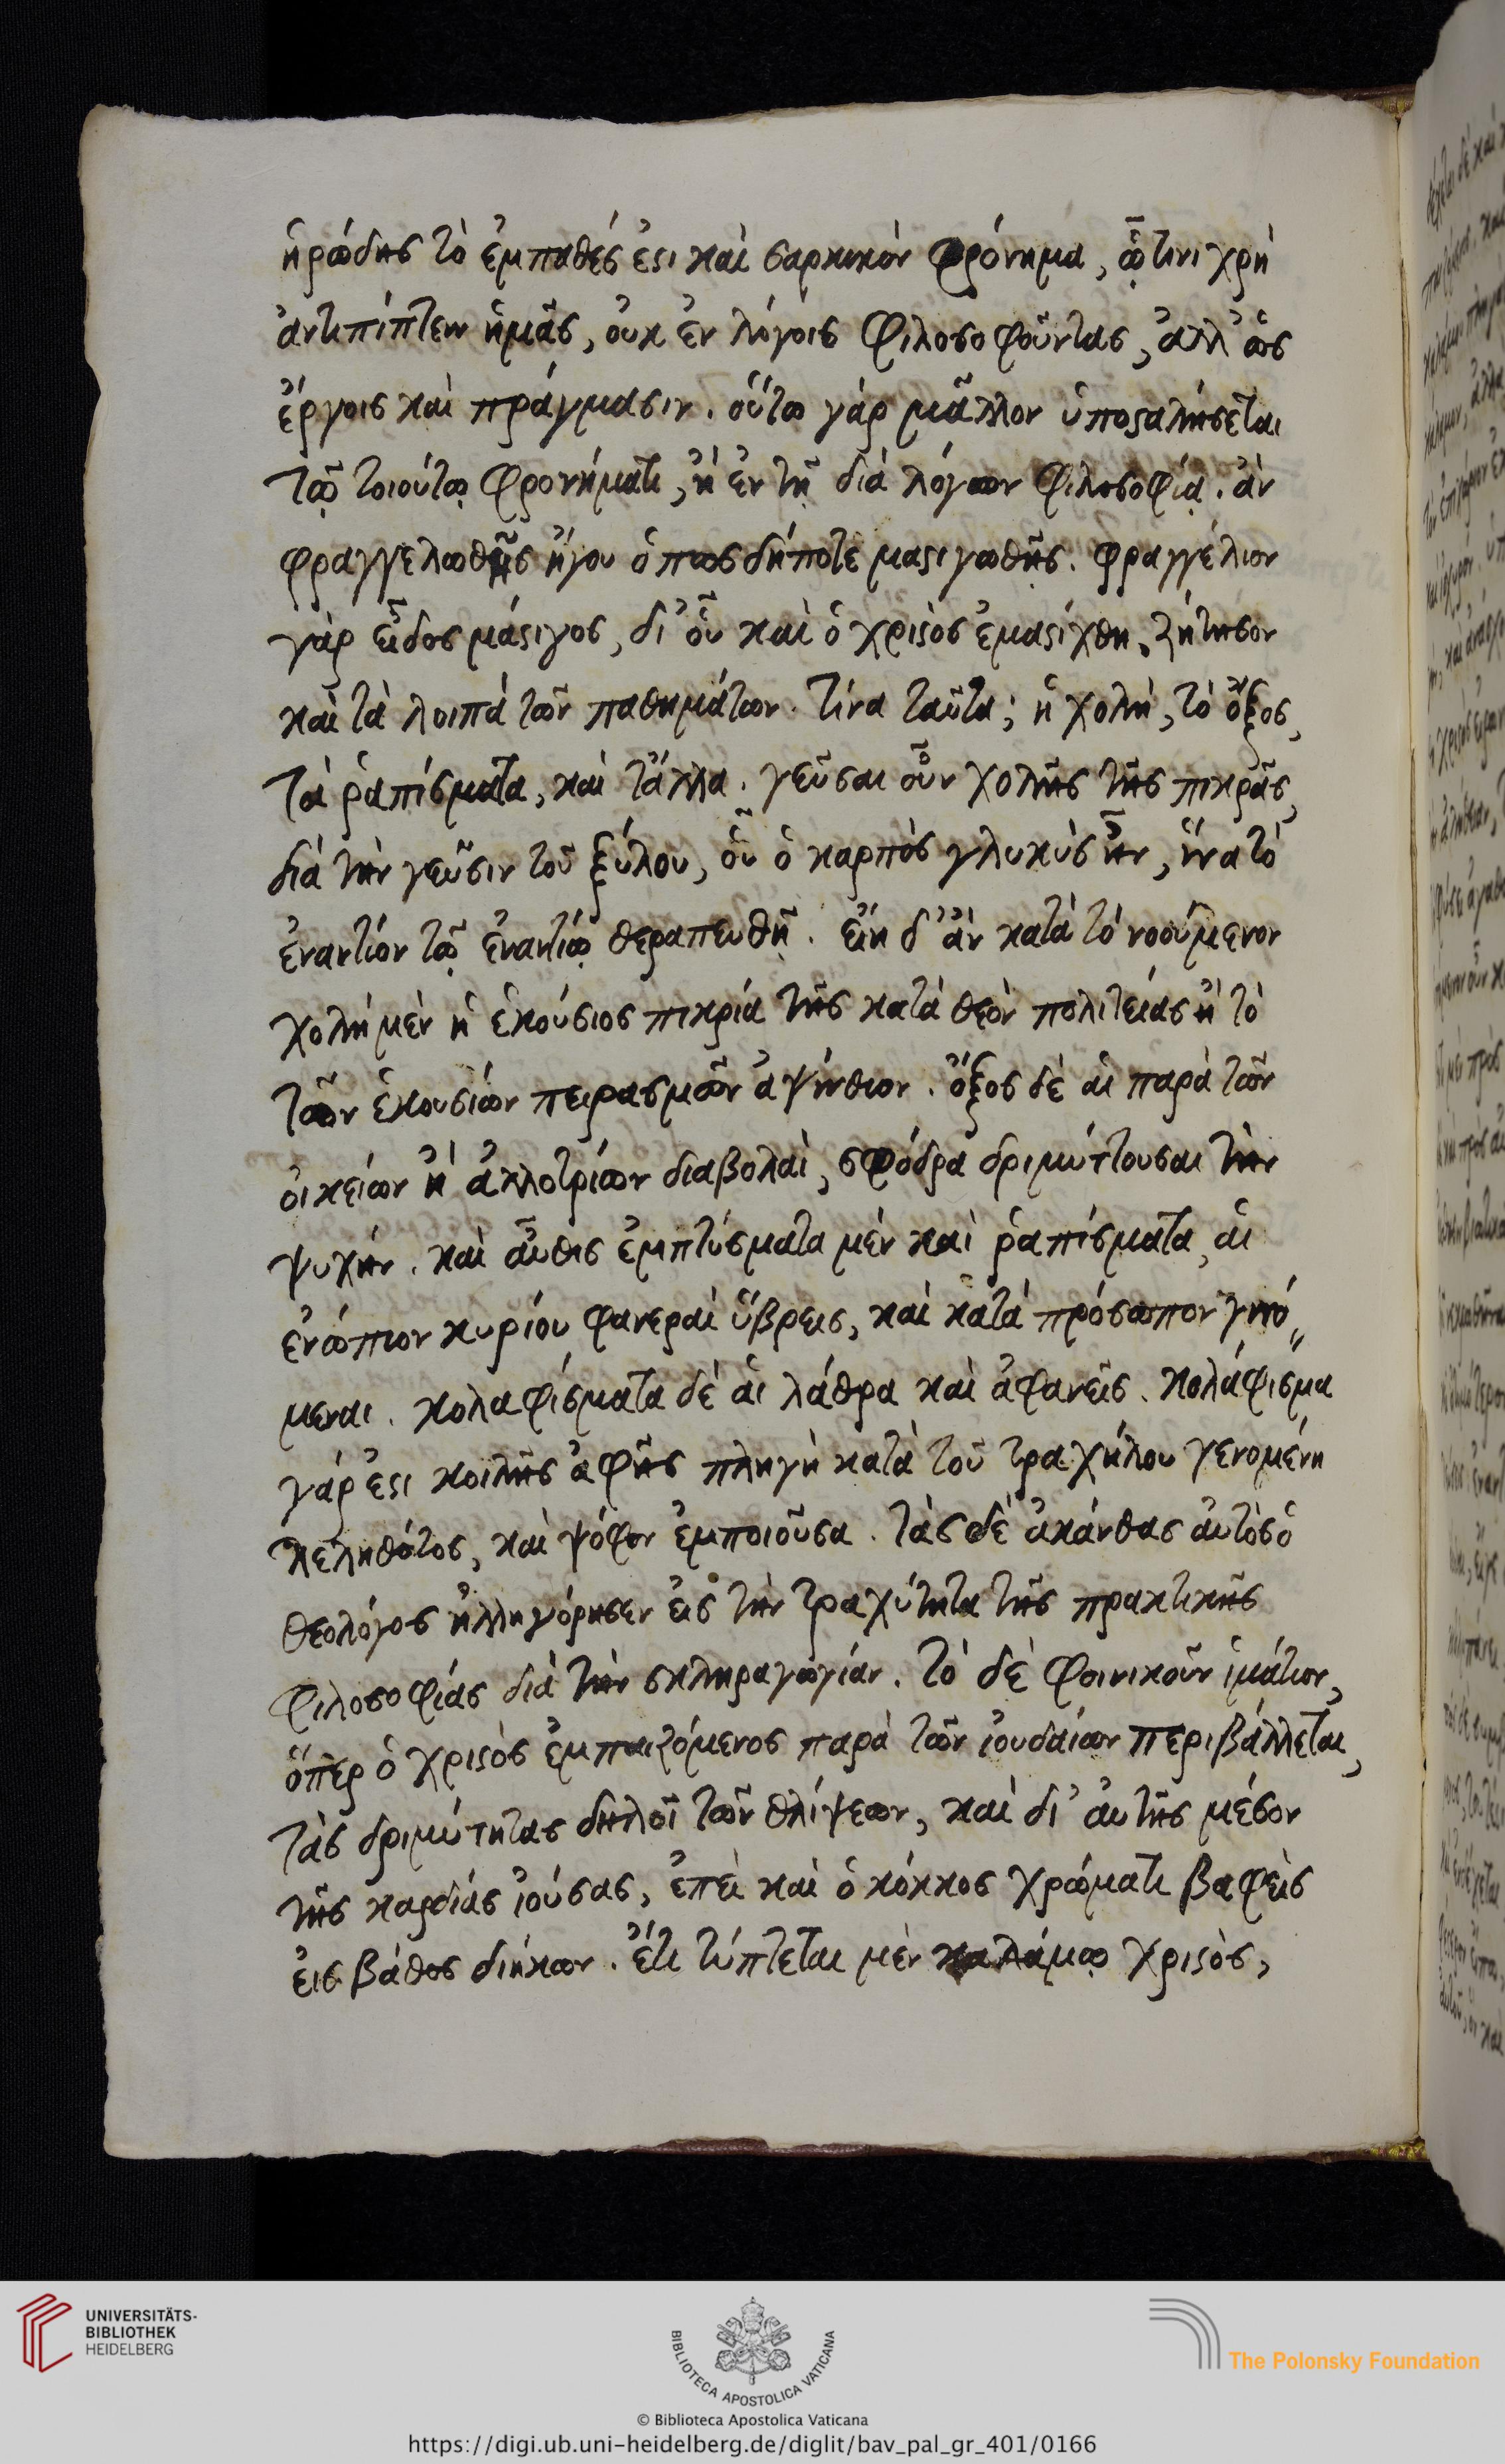 ἡρώδης τὸ ἐμπαθές ἐϛι καὶ σαρκικὸν φρόνημα, ᾧτινι χρὴ
ἀντιπίπτειν ἡμᾶς, οὐκ ἐν λόγοις φιλοσοφοῦντας, ἀλλ' ὡς
ἔργοις καὶ πράγμασιν. οὕτω γάρ μᾶλλον ὑποϛαλήσεται
τῷ τοιούτῳ φρονήματι, ἢ ἐν τῇ διὰ λόγων φιλοσοφίᾳ. ἂν
φραγγελωθῇς ἤγου ὁπωσδήποτε μαϛιγωθῇς. φραγγέλιον
γὰρ εἶδος μάϛιγος, δι' οὗ καὶ ὁ χριϛὸς ἐμαϛίχθη. ζήτησον
καὶ τὰ λοιπά τῶν παθημάτων. τίνα ταῦτα; ἡ χολὴ, τὸ ὄξος,
τὰ ῥαπίσματα, καὶ τἄλλα. γεῦσαι οὖν χολῆς τῆς πικρᾶς,
διά τὴν γεῦσιν τοῦ ξύλου, οὗ ὁ καρπὸς γλυκὺς ἦν, ἵνα τὸ
ἐναντίον τῷ ἐναντίῳ θεραπευθῇ. εἴη δ' ἂν κατὰ τὸ νοούμενον
χολὴ μὲν ἡ ἑκούσιος πικρία τῆς κατὰ θεὸν πολιτείας ἢ τὸ
τῶν ἑκουσίων πειρασμῶν ἀψίνθιον. ὄξος δὲ αἱ παρὰ τῶν
οἰκείων ἢ ἀλλοτρίων διαβολαὶ, σφόδρα δριμύττουσαι τὴν
ψυχὴν. καὶ αὖθις ἐμπτύσματα μὲν καὶ ῥαπίσματα, αἱ
ἐνώπιον κυρίου φανεραὶ ὕβρεις, καὶ κατὰ πρόσωπον γινό
μεναι. κολαφίσματα δὲ αἱ λάθρα καὶ ἀφανεῖς. κολάφισμα
γάρ ἐϛι κοιλῆς ἁφῆς πληγὴ κατὰ τοῦ τραχήλου γενομένη
λεληθότος, καὶ ψόφον ἐμποιοῦσα. τὰς δὲ ἀκάνθας αὐτὸς ὁ
θεολόγος ἠλληγόρησεν εἰς τὴν τραχύτητα τῆς πρακτικῆς
φιλοσοφίας διὰ τὴν σκληραγωγίαν. τὸ δὲ φοινικοῦν ἱμάτιον,
ὅπερ ὁ χριϛὸς ἐμπαιζόμενος παρὰ τῶν ἰουδαίων περιβάλλεται,
τὰς δριμύτητας δηλοῖ τῶν θλίψεων, καὶ δι' αὐτῆς μέσον
τῆς καρδίας ἰούσας, ἐπεὶ καὶ ὁ κόκκος χρώματι βαφεὶς
εἰς βάθος διήκων. ἔτι τύπτεται μὲν καλάμῳ χριϛὸς,
UNIVERSITÄTS-
BIBLIOTHEK
HEIDELBERG
BIBLIOTECA APOSTOLICA VATICANA
The Polonsky Foundation
© Biblioteca Apostolica Vaticana
https://digi.ub.uni-heidelberg.de/diglit/bav_pal_gr_401/0166